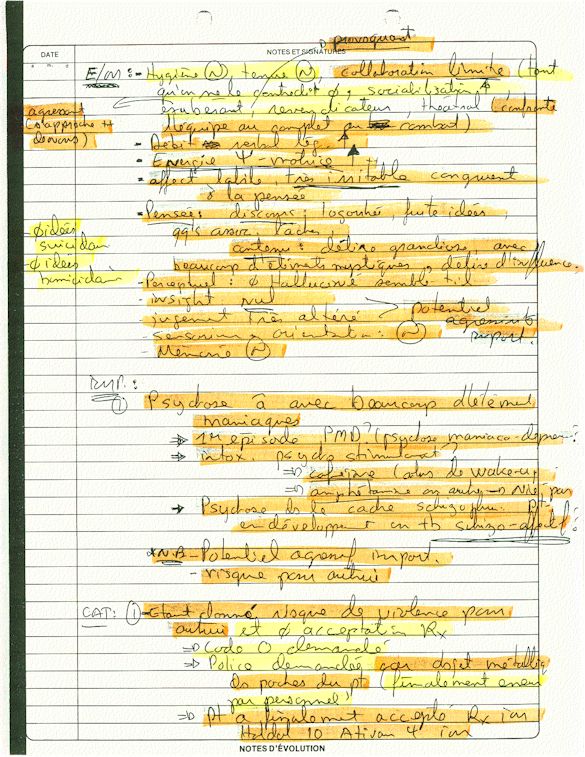 provoquant
DATE
NOTES ET SIGNATURES
E/M : - Hygiène (N), tenue (N), collaboration limite (tant
qu'on ne le contredit ø, socialisation ↑,
exubérant, revendicateur, théatral confronte
l'équipe au complet au combat)
agressant
(s'approche ++
de nous)
- Débit verbal lég. ↑
- Energie Ψ-motrice ↑
- affect labile, très irritable congruent
à la pensée
- Pensée: discours: logorrhé, fuite idées,
qq's assoc. lâches,
contenu: délire grandiose avec
beaucoup d'éléments mystiques, délire d'influence.
- ø idées
suicidaire
- ø idées
homicidaire
- Perceptuel: ø Hallucine semble t'il
- insight nul
- jugement très altéré → potentiel
agressif
import.
- sensorium, orientation: (N)
- Mémoire (N)
IMP.:
① Psychose â avec beaucoup d'élément
maniaques
⇒ 1er épisode PMD? (psychose maniaco-dépress.?
⇒ intox. psychostimulant?
⇒ caféine (abus de wake-up
⇒ amphétamine ou autre → Nié par
pt
→ Psychose ds le cadre schizophr.
en développement ou tb schizo-affectif?
* N.B - Potentiel agressif import.
- risque pour autrui
CAT: ① - Étant donné risque de violence pour
autrui et ø acceptation Rx
⇒ Code O demandé
⇒ Police demandée car objet métalliq
ds poches du pt (finalement enlevé
par personnel)
⇒ Pt a finalement accepté Rx im
Haldol 10 Ativan 4 im
NOTES D'ÉVOLUTION